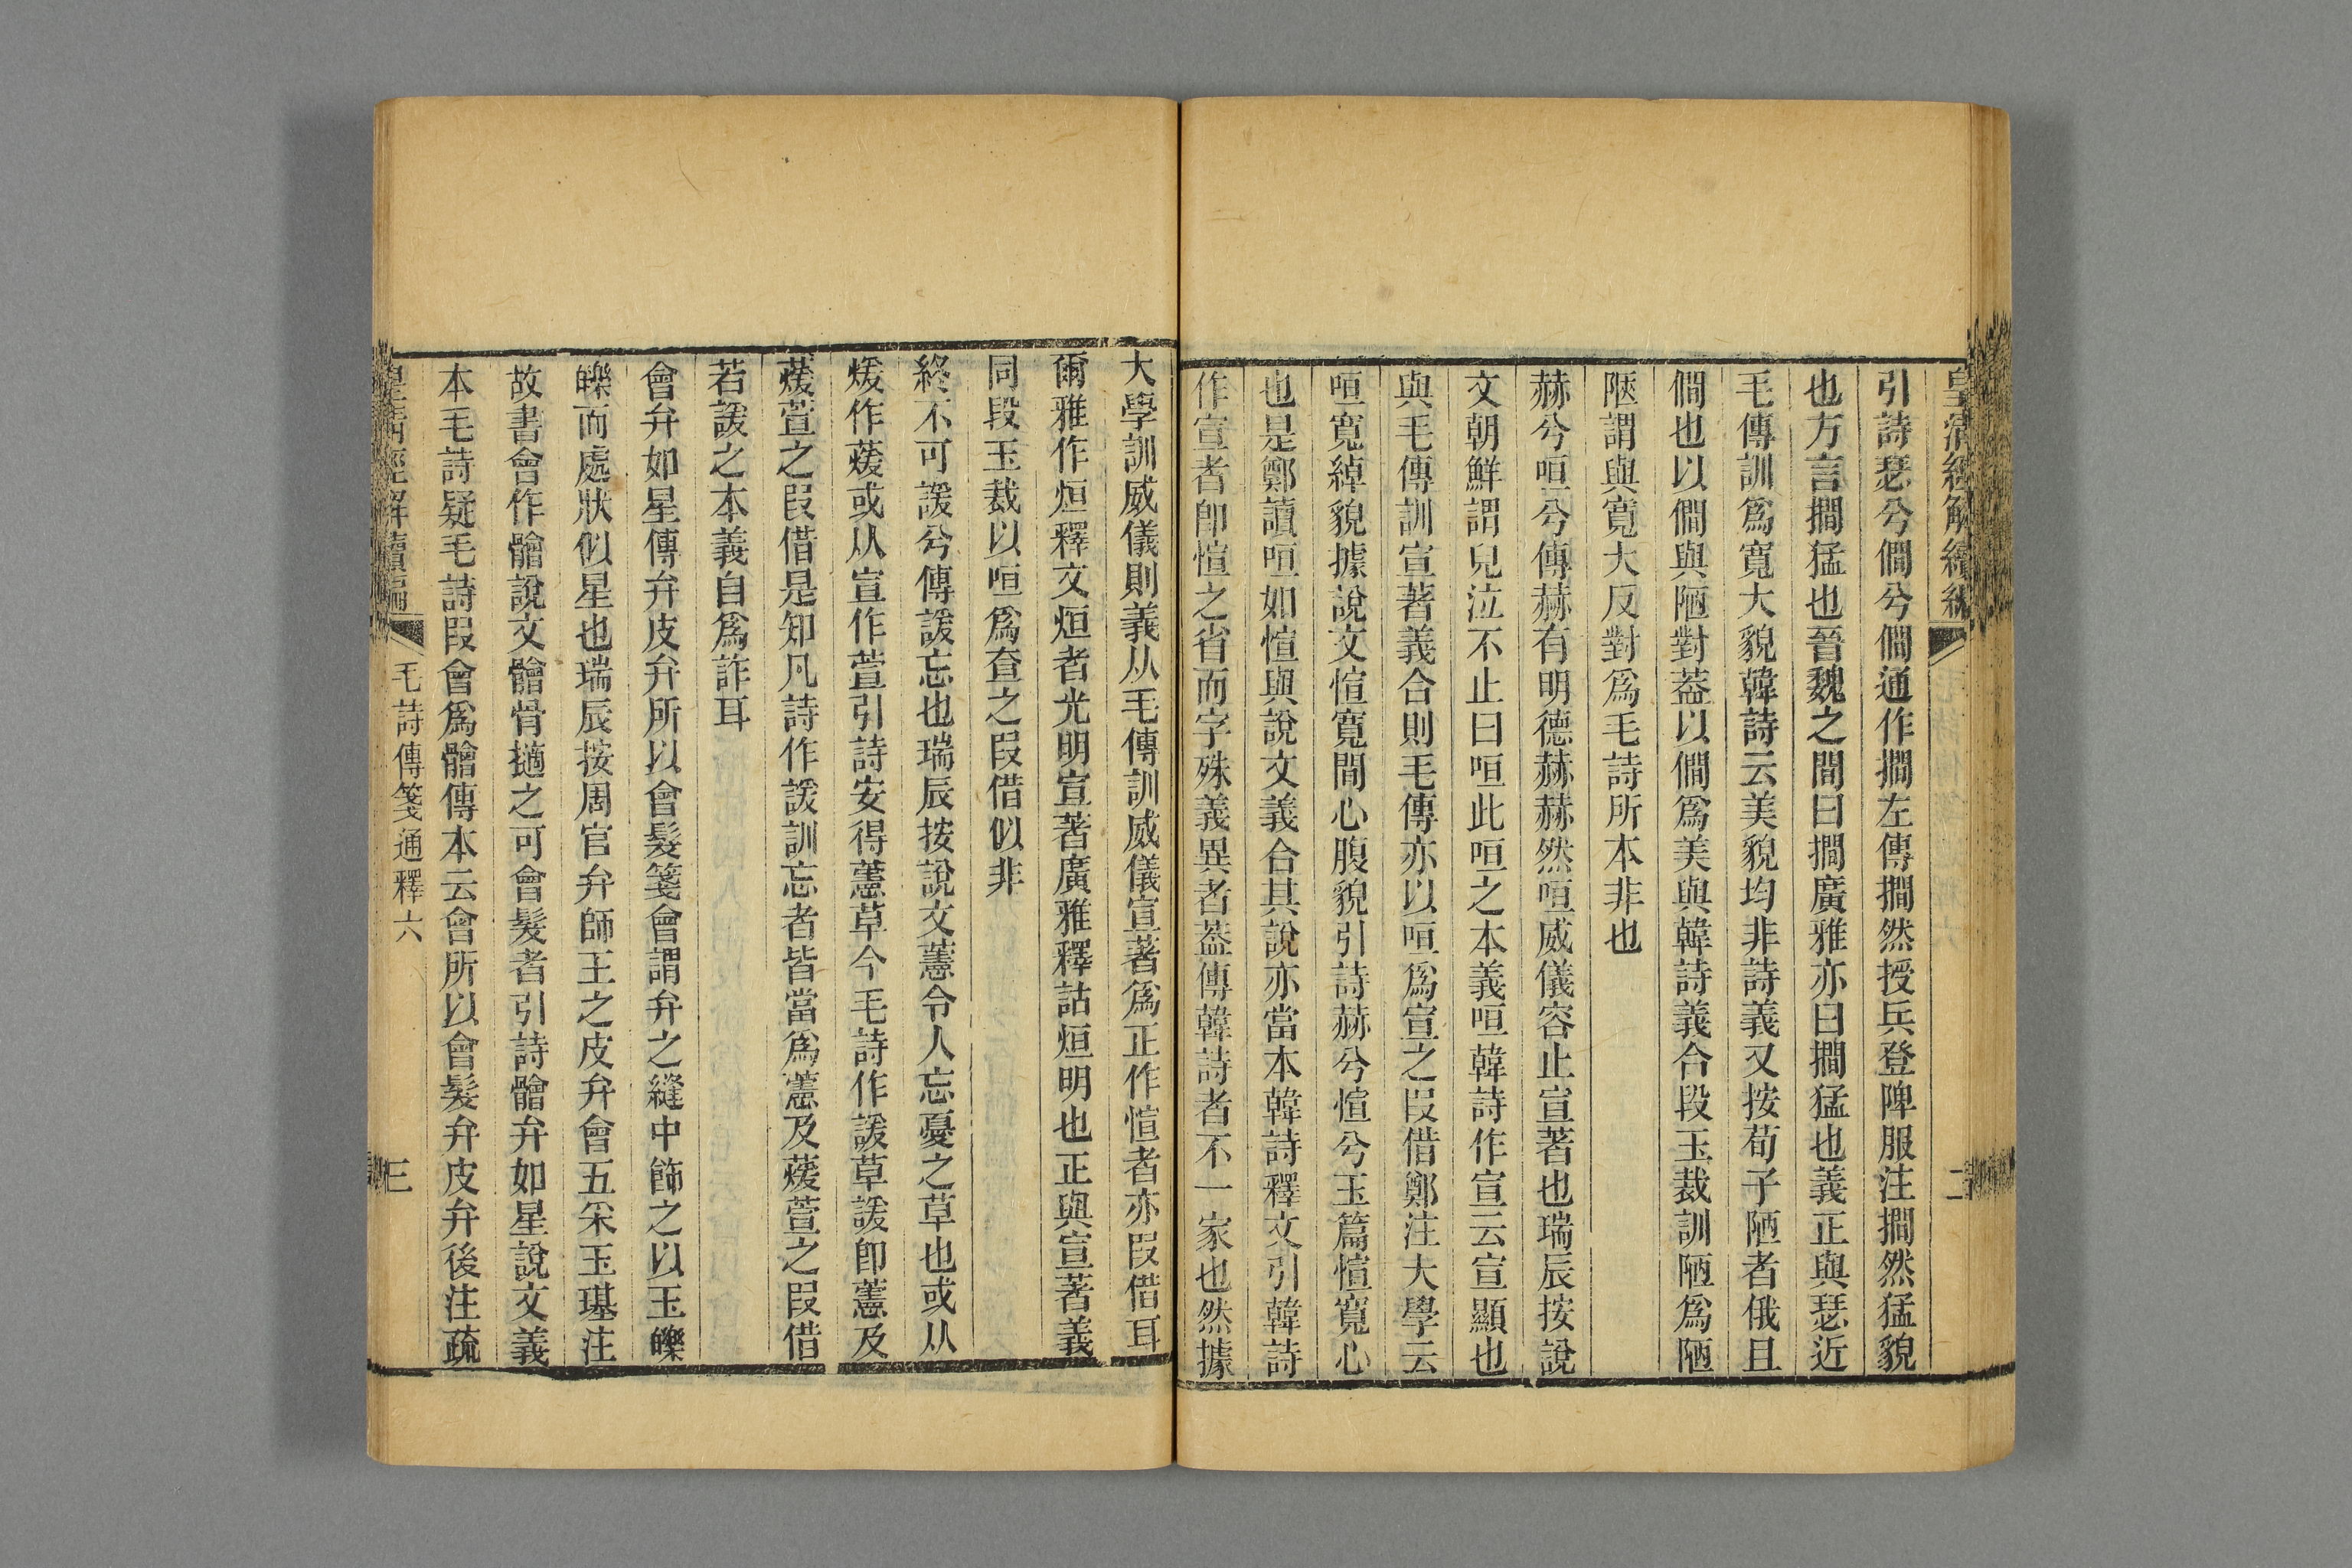 皇清經解續編
二
引詩瑟兮僩兮僩通作撊左傳撊然授兵登陴服注撊然猛貌
也方言撊猛也晉魏之間曰撊廣雅亦曰撊猛也義正與瑟近
毛傳訓爲寬大貌韓詩云美貌均非詩義又按荀子陋者俄且
僩也以僩與陋對葢以僩爲美與韓詩義合段玉裁訓陋爲陋
陿謂與寬大反對爲毛詩所本非也
赫兮咺兮傳赫有明德赫赫然咺威儀容止宣著也瑞辰按說
文朝鮮謂兒泣不止曰咺此咺之本義咺韓詩作宣云宣顯也
與毛傳訓宣著義合則毛傳亦以咺爲宣之叚借鄭注大學云
咺寬綽貌據說文愃寬閒心腹貌引詩赫兮愃兮玉篇愃寬心
也是鄭讀咺如愃與說文義合其說亦當本韓詩釋文引韓詩
作宣者卽愃之省而字殊義異者葢傳韓詩者不一家也然據
大學訓威儀則義从毛傳訓威儀宣著爲正作愃者亦叚借耳
爾雅作烜釋文烜者光明宣著廣雅釋詁烜明也正與宣著義
同段玉裁以咺爲查之叚借似非
終不可諼兮傳諼忘也瑞辰按說文藼令人忘憂之草也或从
煖作蕿或从宣作萱引詩安得藼草今毛詩作諼草諼卽藼及
蕿萱之叚借是知凡詩作諼訓忘者皆當爲藼及蕿萱之叚借
若諼之本義自爲詐耳
會弁如星傳弁皮弁所以會髮箋會謂弁之縫中飾之以玉皪
皪而處狀似星也瑞辰按周官弁師王之皮弁會五采玉璂注
故書會作䯤說文䯤骨擿之可會髮者引詩䯤弁如星說文義
本毛詩疑毛詩叚會爲䯤傳本云會所以會髮弁皮弁後注疏
皇清經解續編
毛詩傳箋通釋六
三